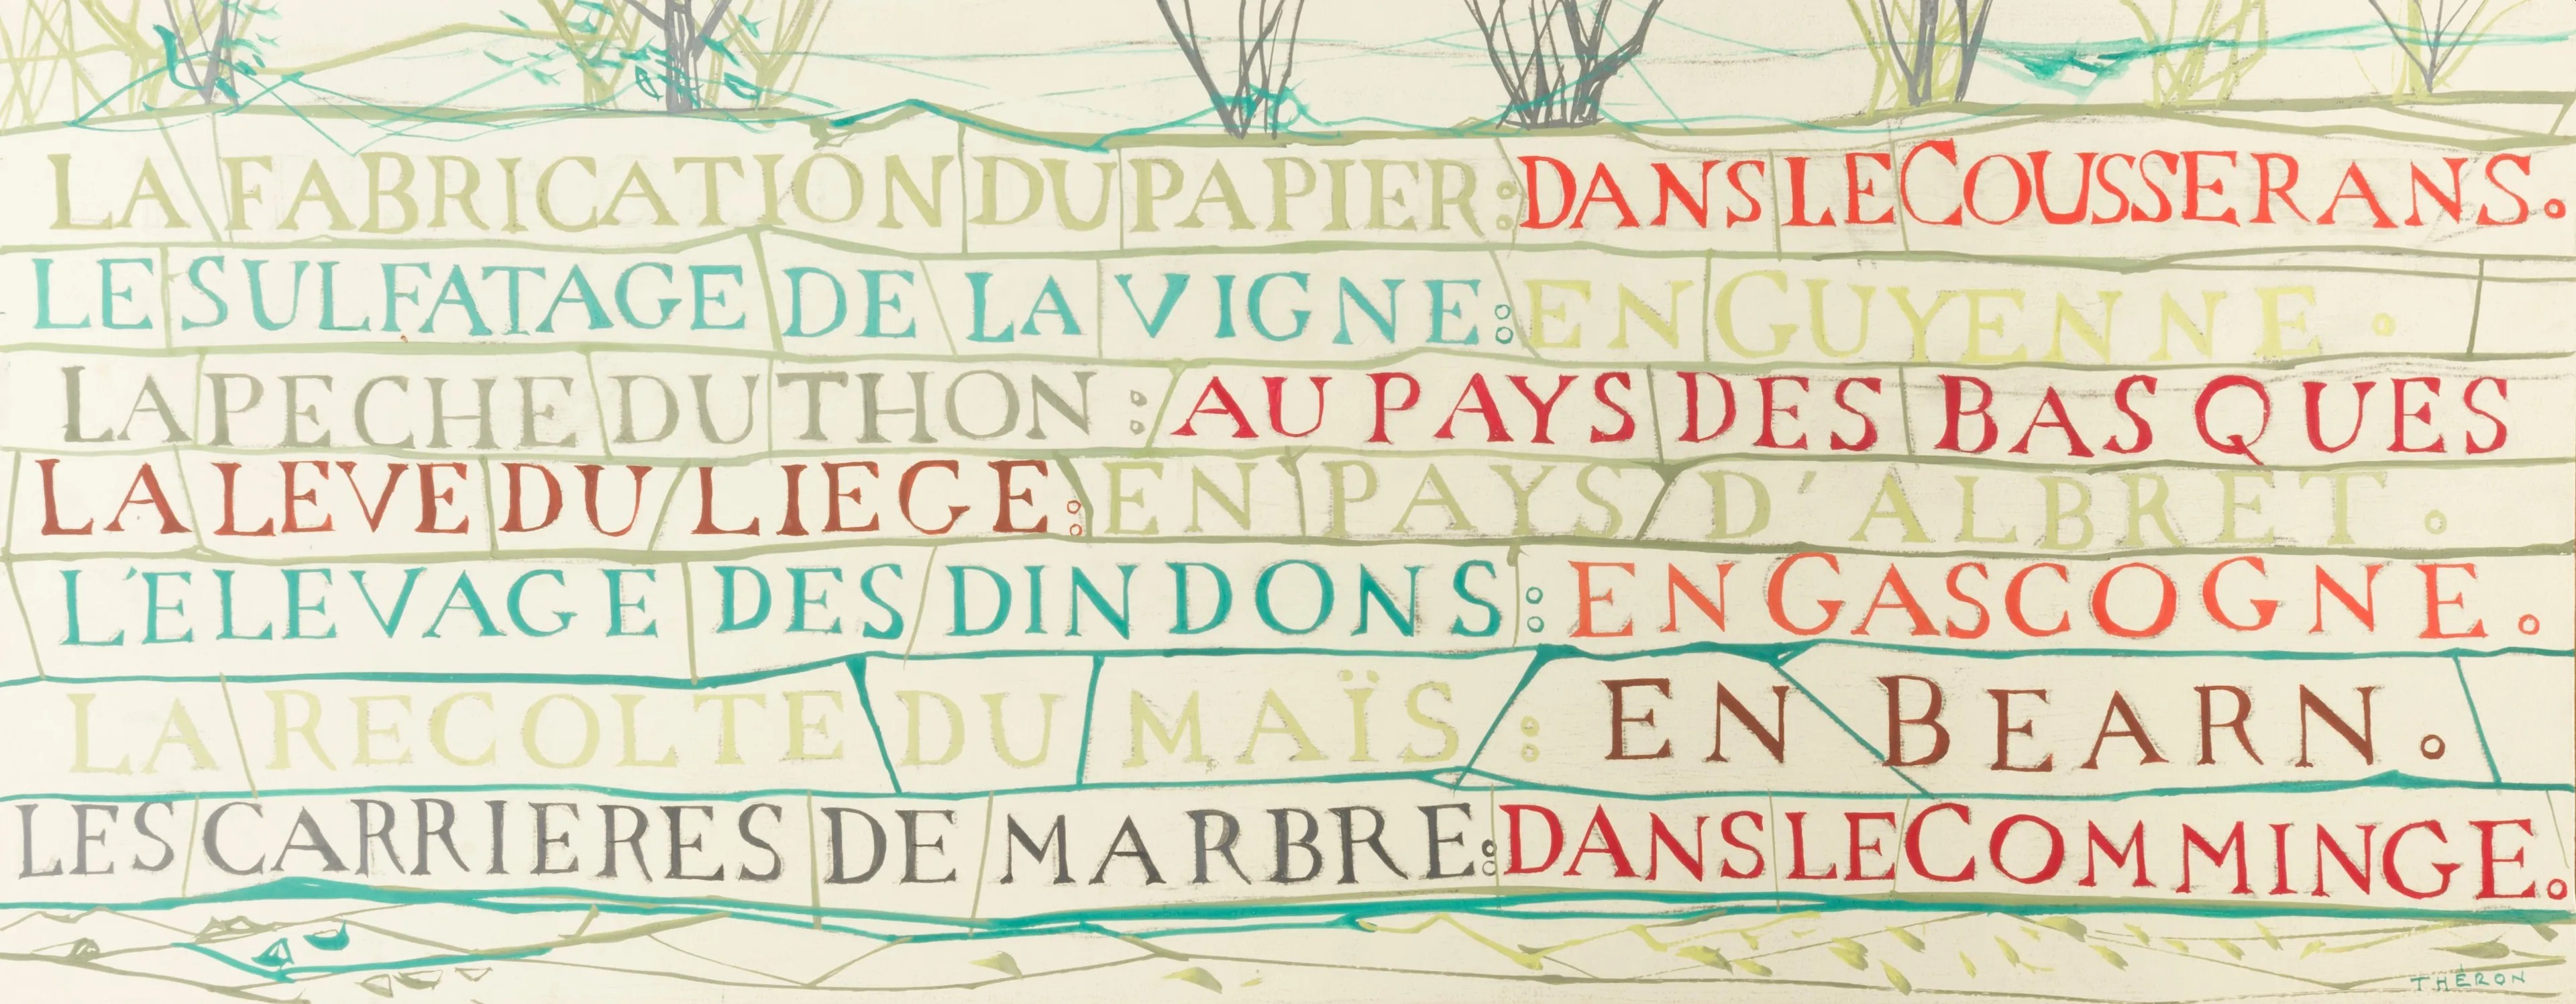 LA FABRICATION DU PAPIER: DANS LE COUSSERANS.
LE SULFATAGE DE LA VIGNE: EN GUYENNE.
LA PECHE DU THON: AU PAYS DES BASQUES
LA LEVE DU LIEGE: EN PAYS D'ALBRET.
L'ELEVAGE DES DINDONS: EN GASCOGNE.
LA RECOLTE DU MAÏS: EN BEARN.
LES CARRIERES DE MARBRE: DANS LE COMMINGE.
THÉRON